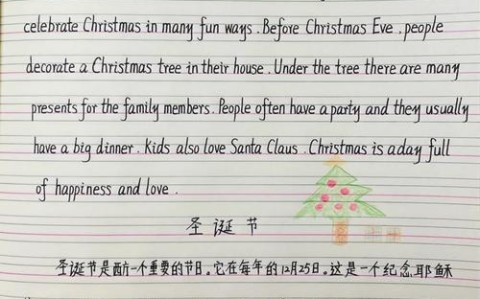 celebrate Christmas in many fun ways. Before Christmas Eve, people
decorate a Christmas tree in their house. Under the tree there are many
presents for the family members. People often have a party and they usually
have a big dinner. Kids also love Santa Claus. Christmas is a day full
of happiness and love.
圣诞节
圣诞节是西方一个重要的节日。它在每年的12月25日。这是一个纪念耶稣